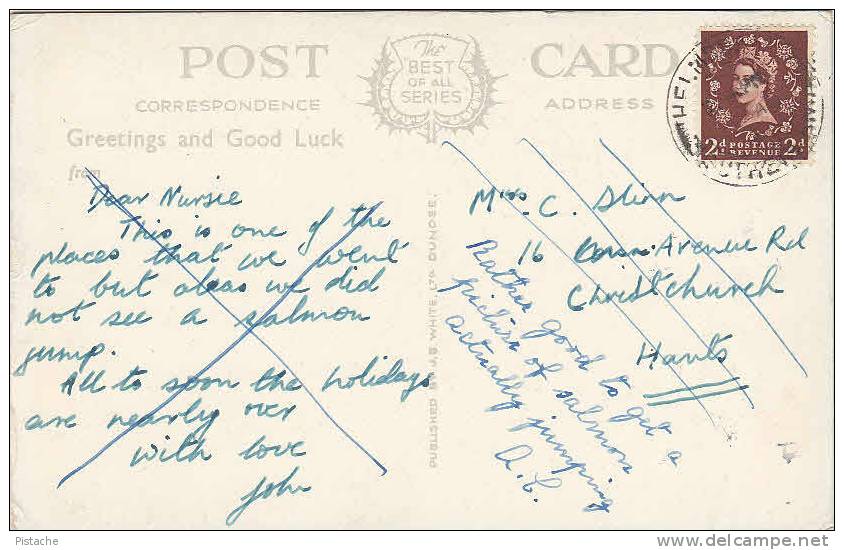 POST CARD
The
BEST
OF ALL
SERIES
CORRESPONDENCE
ADDRESS
Greetings and Good Luck
from
Dear Nursie
This is one of the
places that we went
to but alas we did
not see a salmon
jump.
All to soon the holidays
are nearly over
with love
John
PUBLISHED BY J.B WHITE, LTD DUNDEE.
Miss. C. Slinn
16 Avenue Rd
Christchurch
Hants
Rather good to get a
picture of salmon
actually jumping
A.C.
2d POSTAGE 2d
REVENUE
Pistache
delcampe.net